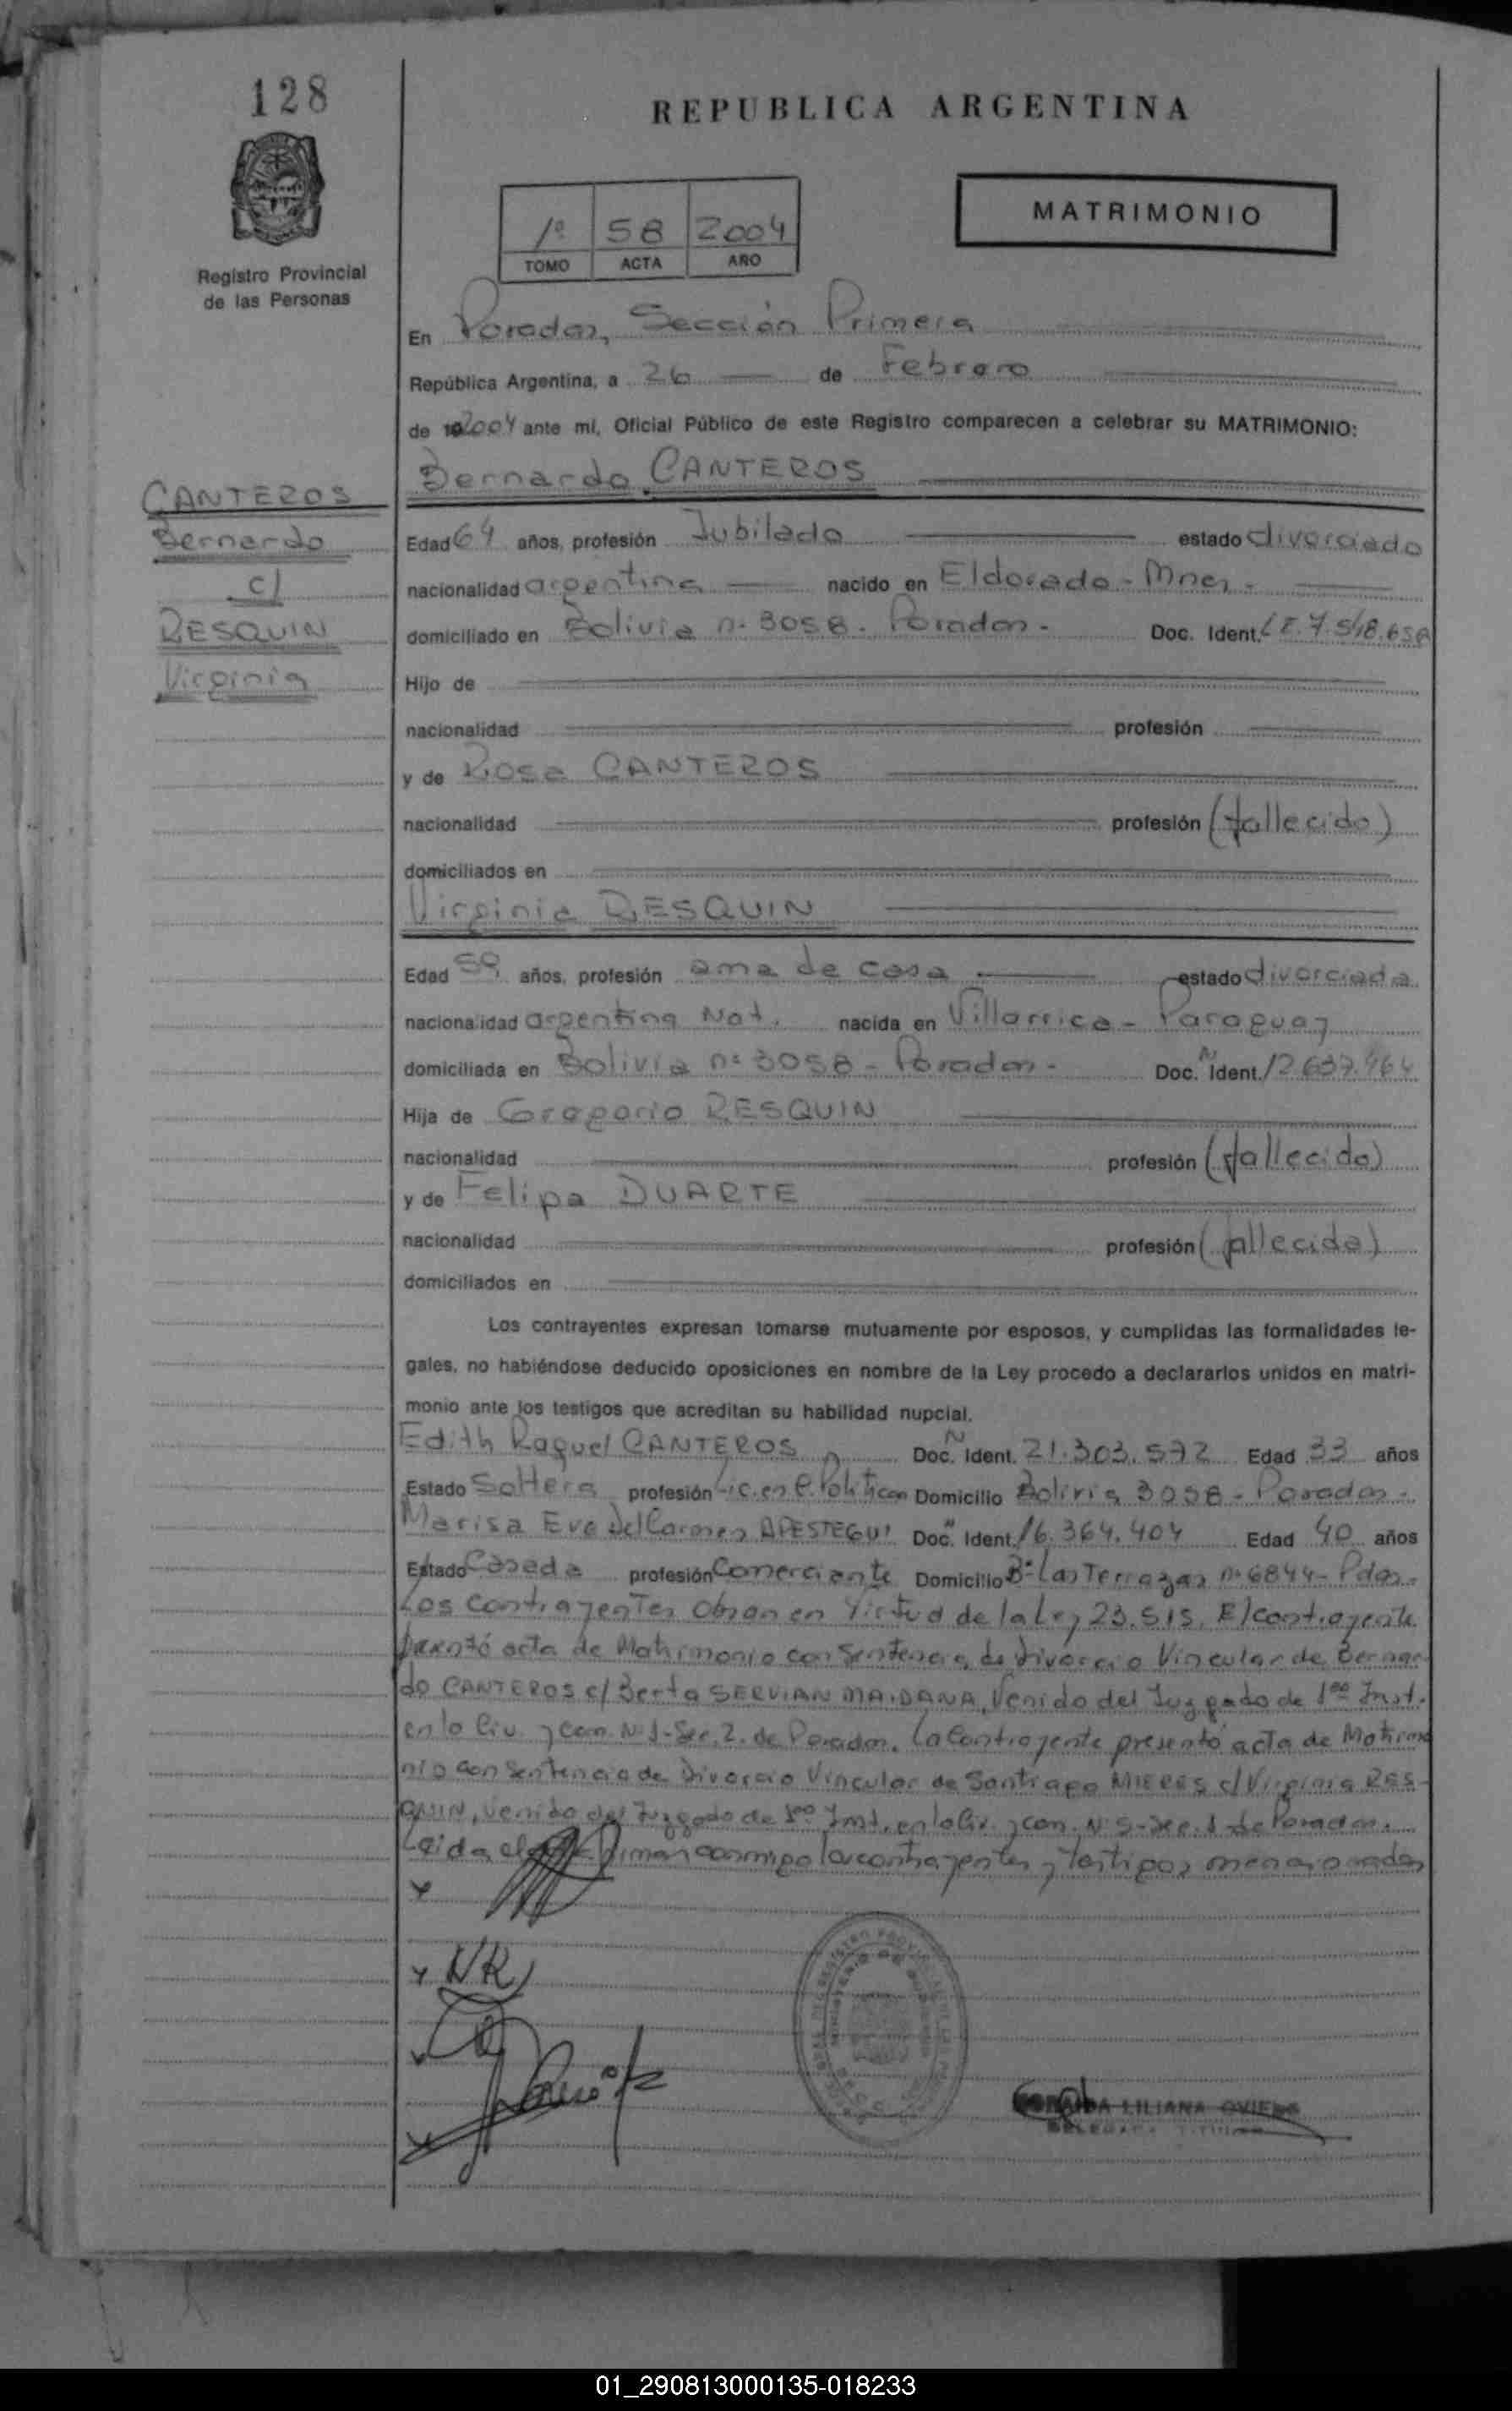 128
REPUBLICA ARGENTINA
MATRIMONIO
1º 58 2004
TOMO ACTA AÑO
Registro Provincial
de las Personas
En Posadas, Sección Primera
República Argentina, a 26 de Febrero
de 192004 ante mí, Oficial Público de este Registro comparecen a celebrar su MATRIMONIO:
Bernardo CANTEROS
CANTEROS
Bernardo
c/
RESQUIN
Virginia
Edad 64 años, profesión Jubilado estado divorciado
nacionalidad argentina nacido en Eldorado - Mnes.
domiciliado en Bolivia nº 3058 - Posadas - Doc. Ident. L.E. 7.518.658
Hijo de
nacionalidad profesión
y de Rosa CANTEROS
nacionalidad profesión (fallecido)
domiciliados en
Virginia RESQUIN
Edad 59 años, profesión ama de casa estado divorciada
nacionalidad argentina Nat. nacida en Villarrica - Paraguay
domiciliada en Bolivia nº 3058 - Posadas - Doc. N Ident. 12.637.464
Hija de Gregorio RESQUIN
nacionalidad profesión (fallecido)
y de Felipa DUARTE
nacionalidad profesión (fallecida)
domiciliados en
Los contrayentes expresan tomarse mutuamente por esposos, y cumplidas las formalidades le-
gales, no habiéndose deducido oposiciones en nombre de la Ley procedo a declararlos unidos en matri-
monio ante los testigos que acreditan su habilidad nupcial.
Edith Raquel CANTEROS Doc. N Ident. 21.303.572 Edad 33 años
Estado Soltera profesión Lic. en C. Políticas Domicilio Bolivia 3058 - Posadas -
Marisa Eva Del Carmen APESTEGUI Doc. N Ident. 16.364.404 Edad 40 años
Estado Casada profesión Comerciante Domicilio Bº Las Terrazas nº 6844 - Pdas -
Los contrayentes obran en virtud de la ley 23.515. El contrayente
presentó acta de Matrimonio con Sentencia de Divorcio Vincular de Bernar-
do CANTEROS c/ Berta SERVIAN MAIDANA, Venido del Juzgado de 1ra Inst.
en lo Civ. y Com. Nº 1 - Sec. 2. de Posadas. La contrayente presentó acta de Matrimo
nio con Sentencia de Divorcio Vincular de Santiago MIERES c/ Virginia RES-
QUIN, venido del Juzgado de 1ra Inst. en lo Civ. y Com. Nº 5 - Sec. 1 de Posadas.
Leida el firman conmigo los contrayentes y testigos mencionados
VR
LILIANA OVIEDO
DELEGADA TITULAR
01_290813000135-018233